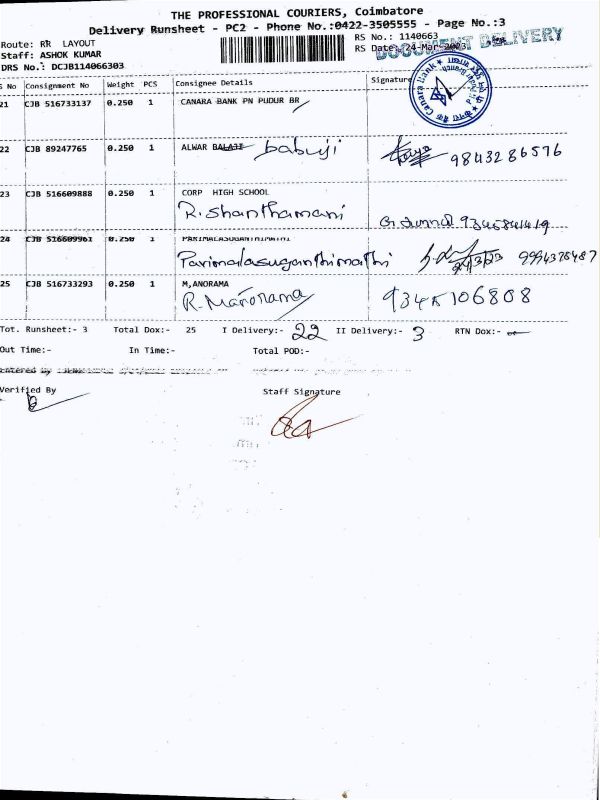 THE PROFESSIONAL COURIERS, Coimbatore
Delivery Runsheet - PC2 - Phone No.:0422-3505555 - Page No.:3
Route: RR LAYOUT
RS No.: 1140663
Staff: ASHOK KUMAR
RS Date: 24-Mar-2023
DOCUMENT DELIVERY
DRS No.: DCJB114066303
S No Consignment No Weight PCS Consignee Details Signature
Canara Bank
21 CJB 516733137 0.250 1 CANARA BANK PN PUDUR BR
22 CJB 89247765 0.250 1 ALWAR BALAJI babuji 9843286576
23 CJB 516609888 0.250 1 CORP HIGH SCHOOL
R. Shanthamani
24 CJB 516609961 0.250 1 PARIMALASUGANTHIMATHI
Parimalasuganthimathi 24/3/23 9994376487
25 CJB 516733293 0.250 1 M,ANORAMA
R. Manorama 9345106808
Tot. Runsheet:- 3 Total Dox:- 25 I Delivery:- 22 II Delivery:- 3 RTN Dox:-
Out Time:- In Time:- Total POD:-
Verified By Staff Signature